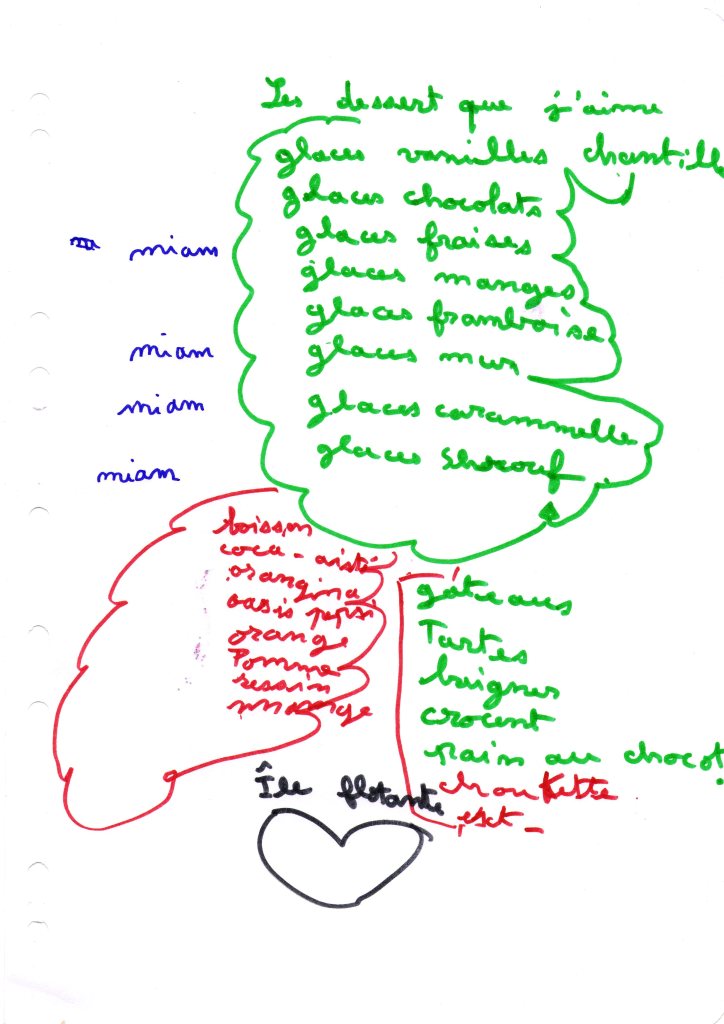 Les dessert que j'aime
glaces vanilles chantill
glaces chocolats
glaces fraises
miam
glaces manges
glaces framboise
miam
glaces murs
miam
glaces carammelle
glaces
miam
boisson
coca -
orangina
oasis pepsi
orange
Pomme
ressin
gâteaus
Tartes
beignes
crocent
pain au chocot
chouKette
ect -
Île flotante